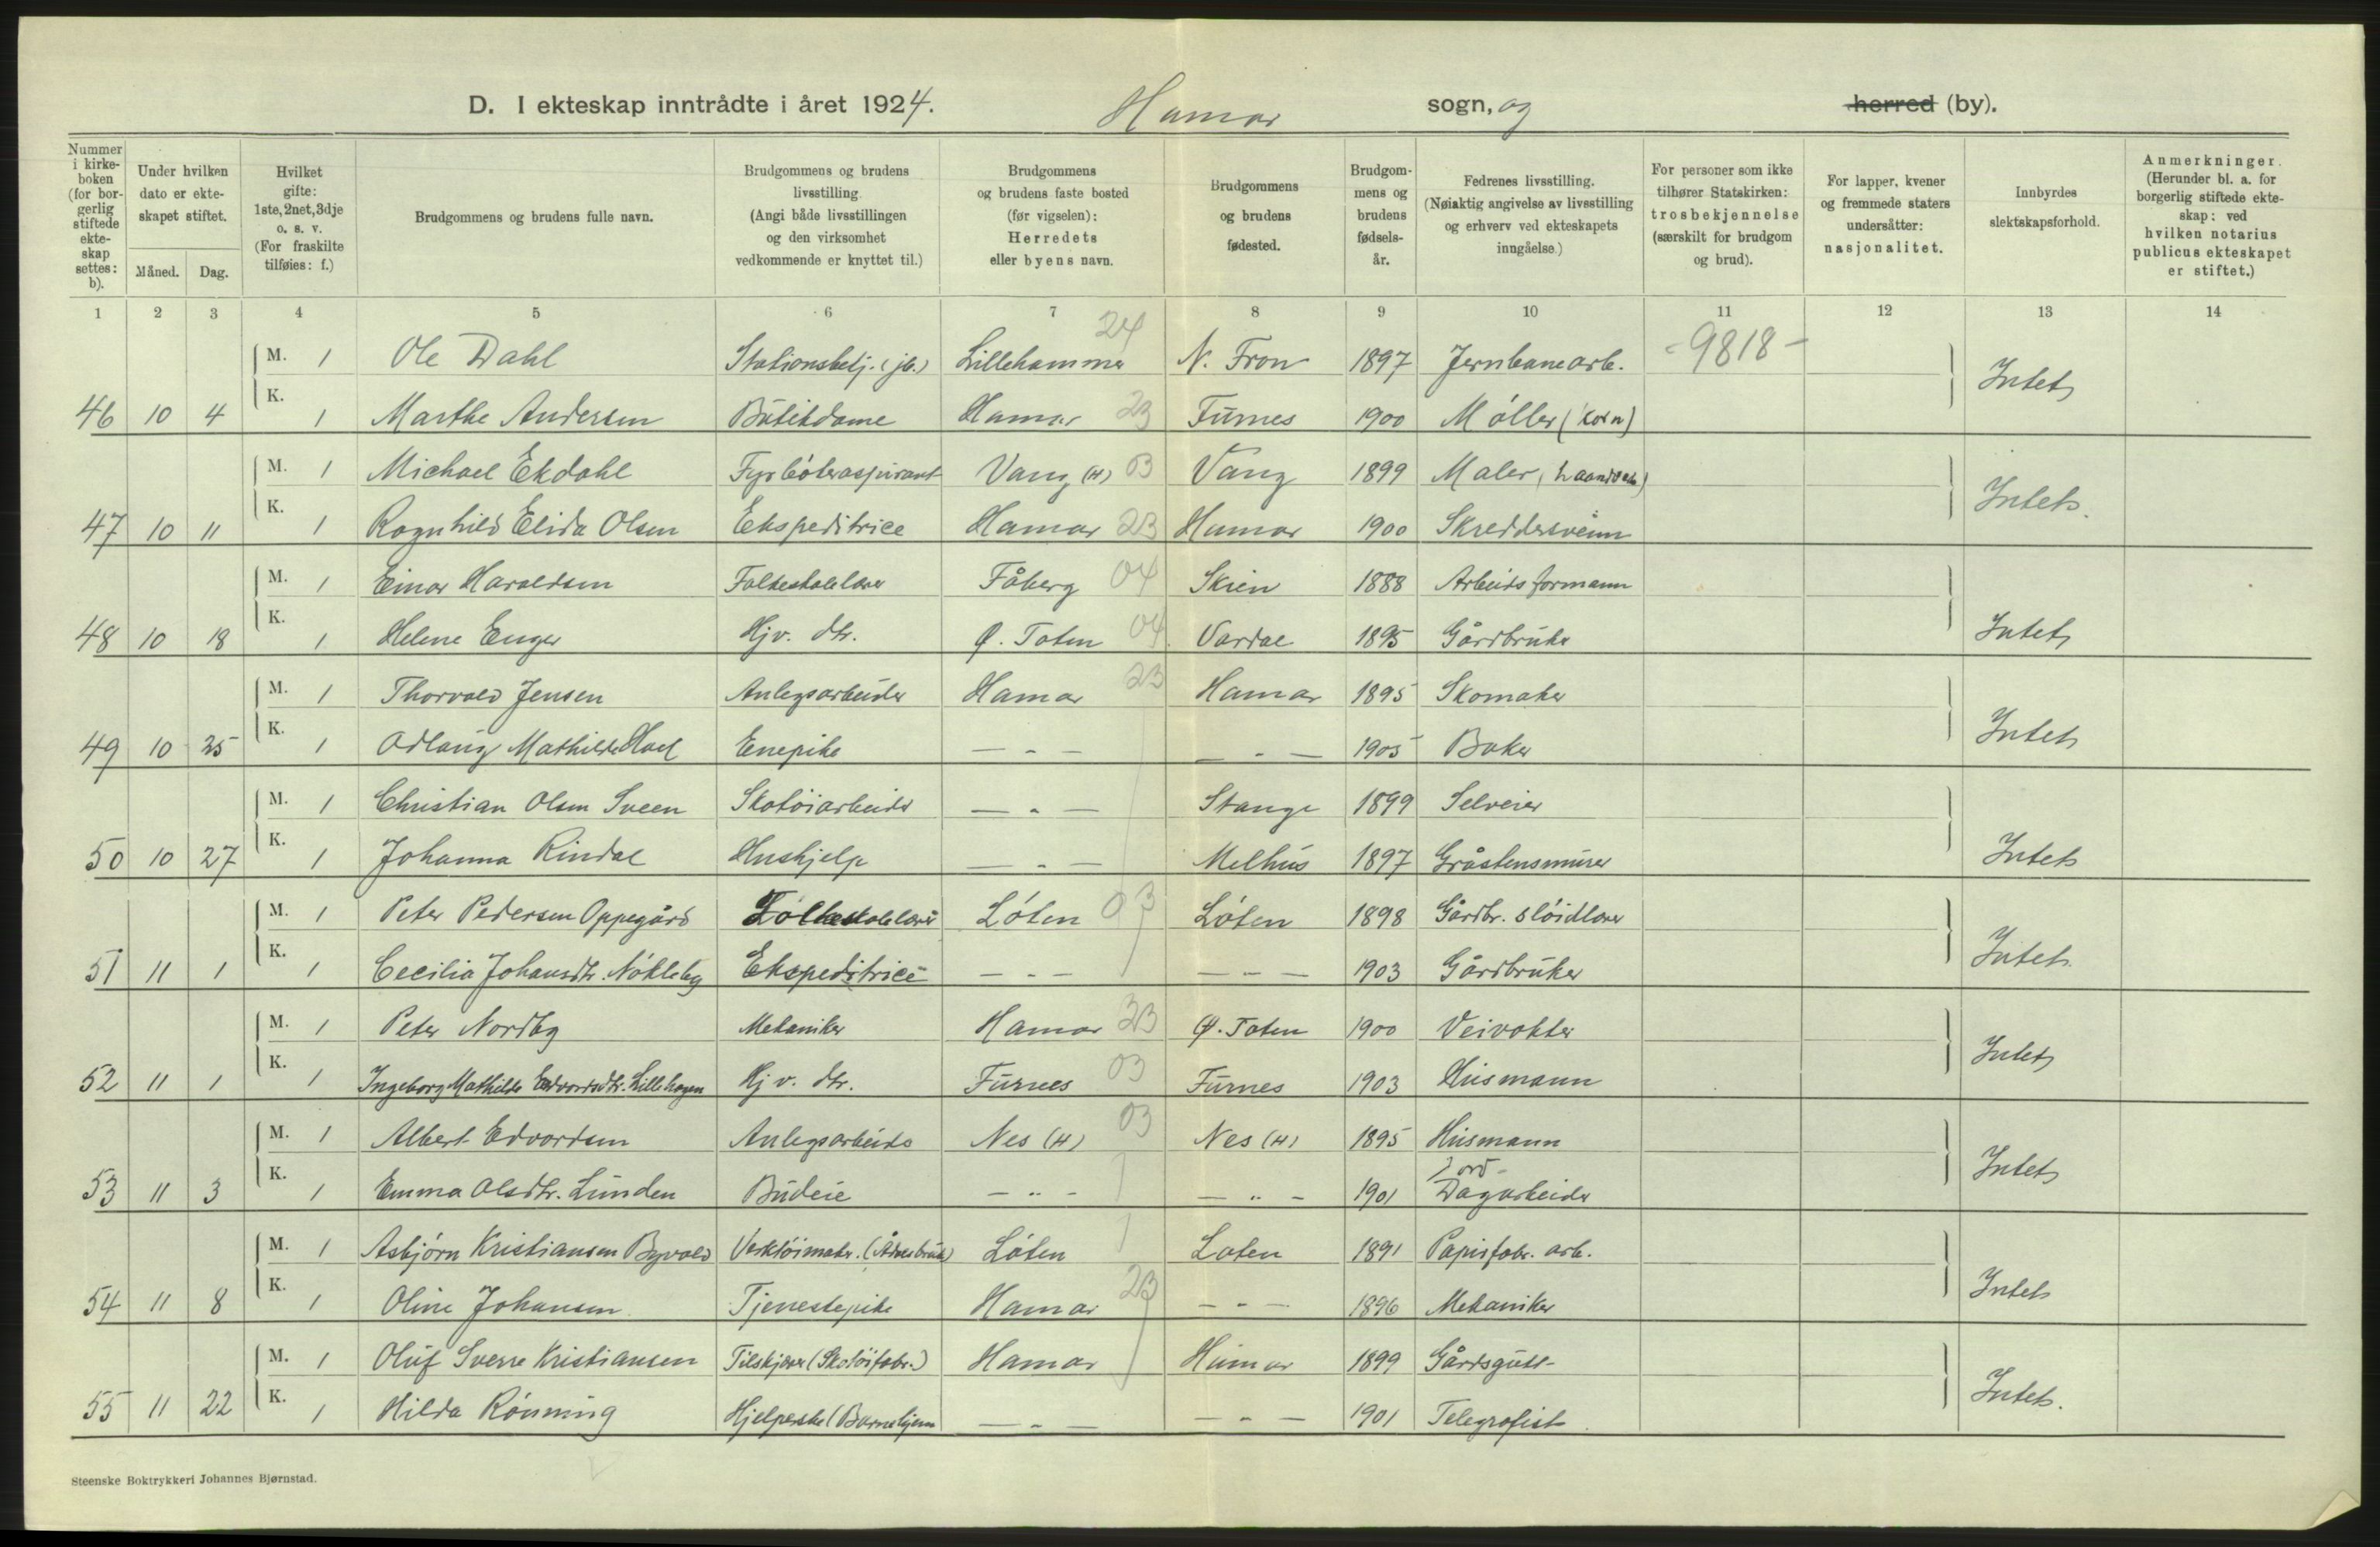 D. I ekteskap inntrådte i året 1924. Hamar sogn, og herred (by).
Nummer i kirkeboken (for borgerlig stiftede ekteskap settes: b).
Under hvilken dato er ekteskapet stiftet.
Måned. Dag.
Hvilket gifte: 1ste, 2net, 3dje o. s. v. (For fraskilte tilføies: f.)
Brudgommens og brudens fulle navn.
Brudgommens og brudens livsstilling. (Angi både livsstillingen og den virksomhet vedkommende er knyttet til.)
Brudgommens og brudens faste bosted (før vigselen): Herredets eller byens navn.
Brudgommens og brudens fødested.
Brudgommens og brudens fødselsår.
Fedrenes livsstilling. (Nøiaktig angivelse av livsstilling og erhverv ved ekteskapets inngåelse.)
For personer som ikke tilhører Statskirken: trosbekjennelse (særskilt for brudgom og brud).
For lapper, kvener og fremmede staters undersåtter: nasjonalitet.
Innbyrdes slektskapsforhold.
Anmerkninger. (Herunder bl. a. for borgerlig stiftede ekteskap: ved hvilken notarius publicus ekteskapet er stiftet.)
1 2 3 4 5 6 7 8 9 10 11 12 13 14
M. 1 Ole Dahl Stationsbetj. (jb.) Lillehammer 24 N. Fron 1897 Jernbanearb. -9818-
46 10 4 K. 1 Marthe Andersen Butikdame Hamar 23 Furnes 1900 Møller (korn) Intet
M. 1 Michael Ekdahl Fyrbøteraspirant Vang (H) 03 Vang 1899 Maler (haandverk)
47 10 11 K. 1 Ragnhild Elida Olsen Ekspeditrice Hamar 23 Hamar 1900 Skreddersvenn Intet.
M. 1 Einar Haraldsen Folkeskolelærer Fåberg 04 Skien 1888 Arbeidsformann
48 10 18 K. 1 Helene Enger Hjv. dtr. Ø. Toten 04 Vardal 1895 Gårdbruker Intet
M. 1 Thorvald Jensen Anlegsarbeider Hamar 23 Hamar 1895 Skomaker
49 10 25 K. 1 Odlaug Mathilde Enepike — " — — " — 1905 Baker Intet
M. 1 Christian Olsen Sveen Skotøiarbeider — " — Stange 1899 Selveier
50 10 27 K. 1 Johanna Rindal Hushjelp — " — Melhus 1897 Gråstensmurer Intet
M. 1 Peter Pedersen Oppegård Folkeskolelærer Løten 03 Løten 1898 Gårdbr. sløidlærer
51 11 1 K. 1 Cecilia Johansdtr. Nökleby Ekspeditrice — " — — " — 1903 Gårdbruker Intet.
M. 1 Peter Nordby Mekaniker Hamar 23 Ø. Toten 1900 Veivokter
52 11 1 K. 1 Ingeborg Mathilde Edvardsdtr. Lillehagen Hjv. dtr. Furnes 03 Furnes 1903 Husmann Intet
M. 1 Albert Edvardsen Anlegsarbeider Nes (H) 03 Nes (H) 1895 Husmann
53 11 3 K. 1 Emma Olsdtr. Lunden Budeie — " — — " — 1901 Jord- Dagarbeider Intet
M. 1 Asbjørn Kristiansen Byvold Verktøimaker. (Ådalsbruk) Løten Løten 1891 Papirfabr. arb.
54 11 8 K. 1 Oline Johansen Tjenestepike Hamar 23 — " — 1896 Mekaniker Intet
M. 1 Oluf Sverre Kristiansen Tilskjærer (Skotøifabr.) Hamar Hamar 1899 Gårdsgutt
55 11 22 K. 1 Hilda Rønning (Barnehjem — " — — " — 1901 Telegrafist Intet.
Steenske Boktrykkeri Johannes Bjørnstad.